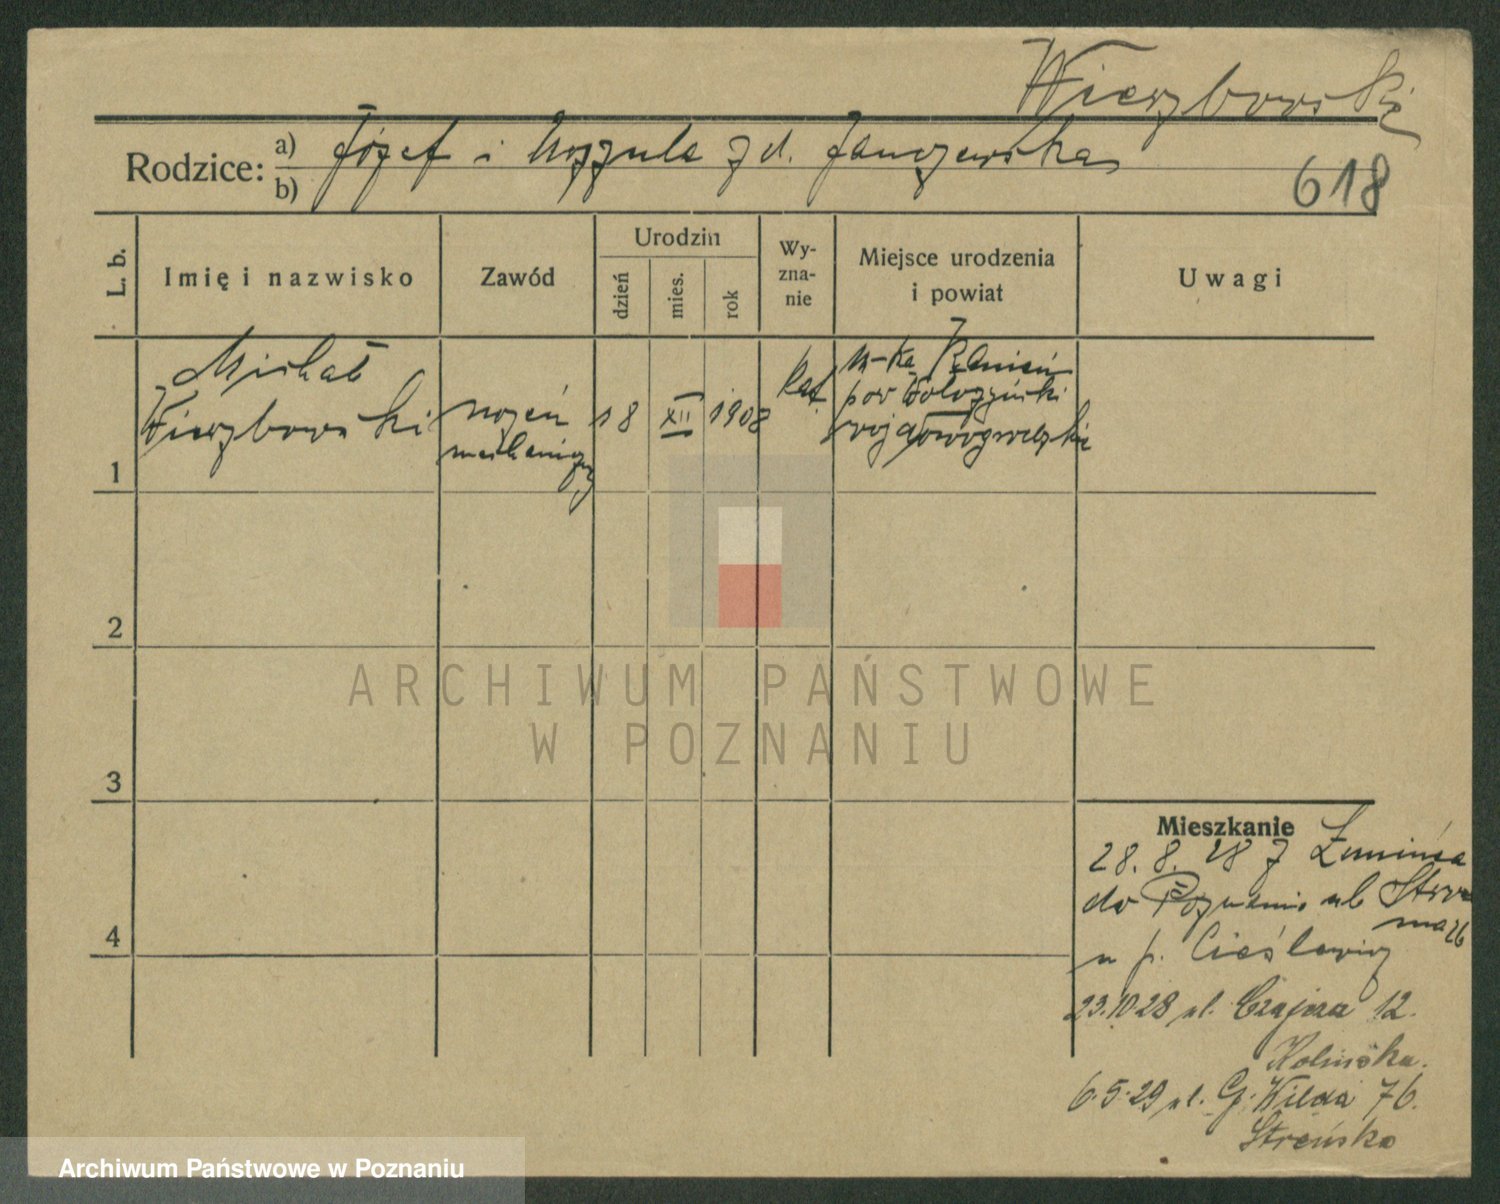 Wierzbowski
Rodzice: a) Józef i Urszula z d. Janczewska
b)
618
L. b.
Imię i nazwisko
Zawód
Urodzin
dzień
mies.
rok
Wy-
zna-
nie
Miejsce urodzenia
i powiat
Uwagi
1
Michał
Wierzbowski
uczeń
mechaniczny
18
XII
1908
kat.
m-ka Kamień
pow Wołożyński
woj Nowogródzkie
2
3
4
Mieszkanie
28. 8. 28 z Żnina
do Poznania ul
u p. Cieślewicz
23.10.28 ul. Czajcza 12.
Kolińska.
6.5.29 ul. G. Wilda 76.
Streńska
ARCHIWUM PAŃSTWOWE
W POZNANIU
Archiwum Państwowe w Poznaniu